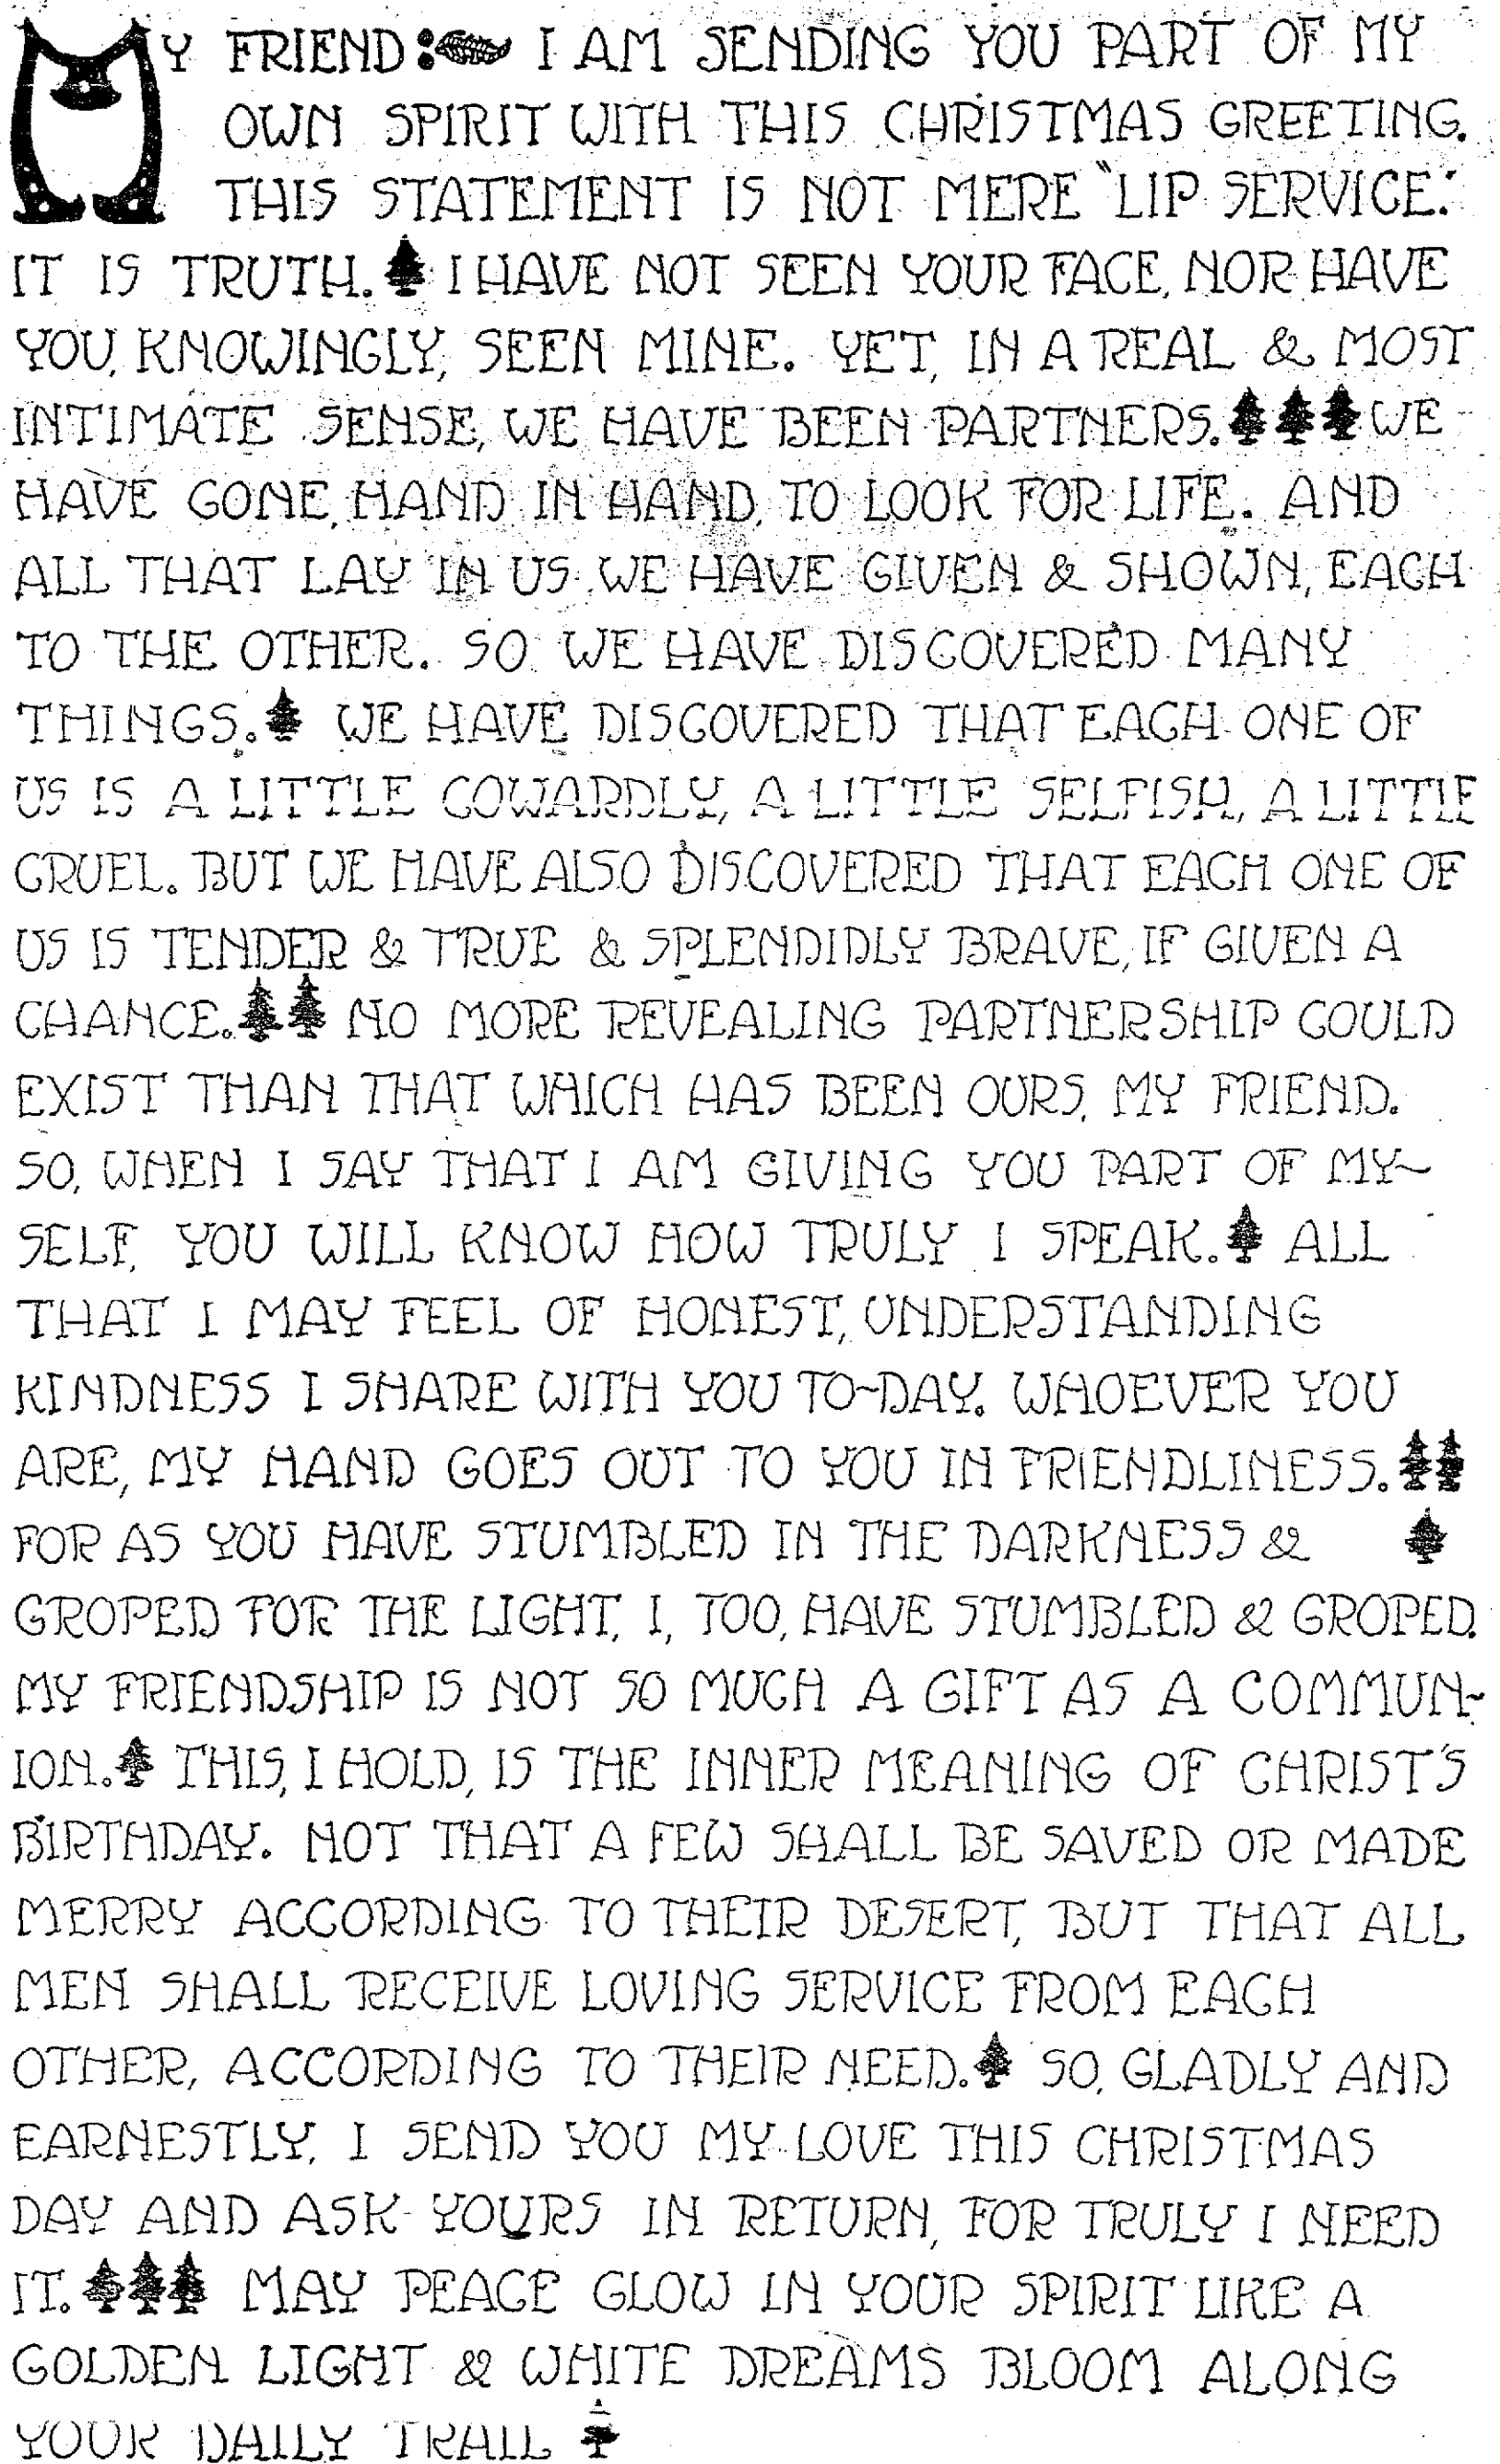 MY FRIEND: I AM SENDING YOU PART OF MY
OWN SPIRIT WITH THIS CHRISTMAS GREETING.
THIS STATEMENT IS NOT MERE "LIP SERVICE."
IT IS TRUTH. I HAVE NOT SEEN YOUR FACE, NOR HAVE
YOU, KNOWINGLY, SEEN MINE. YET, IN A REAL & MOST
INTIMATE SENSE, WE HAVE BEEN PARTNERS. WE
HAVE GONE, HAND IN HAND, TO LOOK FOR LIFE. AND
ALL THAT LAY IN US WE HAVE GIVEN & SHOWN, EACH
TO THE OTHER. SO WE HAVE DISCOVERED MANY
THINGS. WE HAVE DISCOVERED THAT EACH ONE OF
US IS A LITTLE COWARDLY, A LITTLE SELFISH, A LITTLE
CRUEL. BUT WE HAVE ALSO DISCOVERED THAT EACH ONE OF
US IS TENDER & TRUE & SPLENDIDLY BRAVE, IF GIVEN A
CHANCE. NO MORE REVEALING PARTNERSHIP COULD
EXIST THAN THAT WHICH HAS BEEN OURS, MY FRIEND.
SO, WHEN I SAY THAT I AM GIVING YOU PART OF MY-
SELF, YOU WILL KNOW HOW TRULY I SPEAK. ALL
THAT I MAY FEEL OF HONEST, UNDERSTANDING
KINDNESS I SHARE WITH YOU TO-DAY. WHOEVER YOU
ARE, MY HAND GOES OUT TO YOU IN FRIENDLINESS.
FOR AS YOU HAVE STUMBLED IN THE DARKNESS &
GROPED FOR THE LIGHT, I, TOO, HAVE STUMBLED & GROPED.
MY FRIENDSHIP IS NOT SO MUCH A GIFT AS A COMMUN-
ION. THIS, I HOLD, IS THE INNER MEANING OF CHRIST'S
BIRTHDAY. NOT THAT A FEW SHALL BE SAVED OR MADE
MERRY ACCORDING TO THEIR DESERT, BUT THAT ALL
MEN SHALL RECEIVE LOVING SERVICE FROM EACH
OTHER, ACCORDING TO THEIR NEED. SO, GLADLY AND
EARNESTLY, I SEND YOU MY LOVE THIS CHRISTMAS
DAY AND ASK YOURS IN RETURN, FOR TRULY I NEED
IT. MAY PEACE GLOW IN YOUR SPIRIT LIKE A
GOLDEN LIGHT & WHITE DREAMS BLOOM ALONG
YOUR DAILY TRAIL